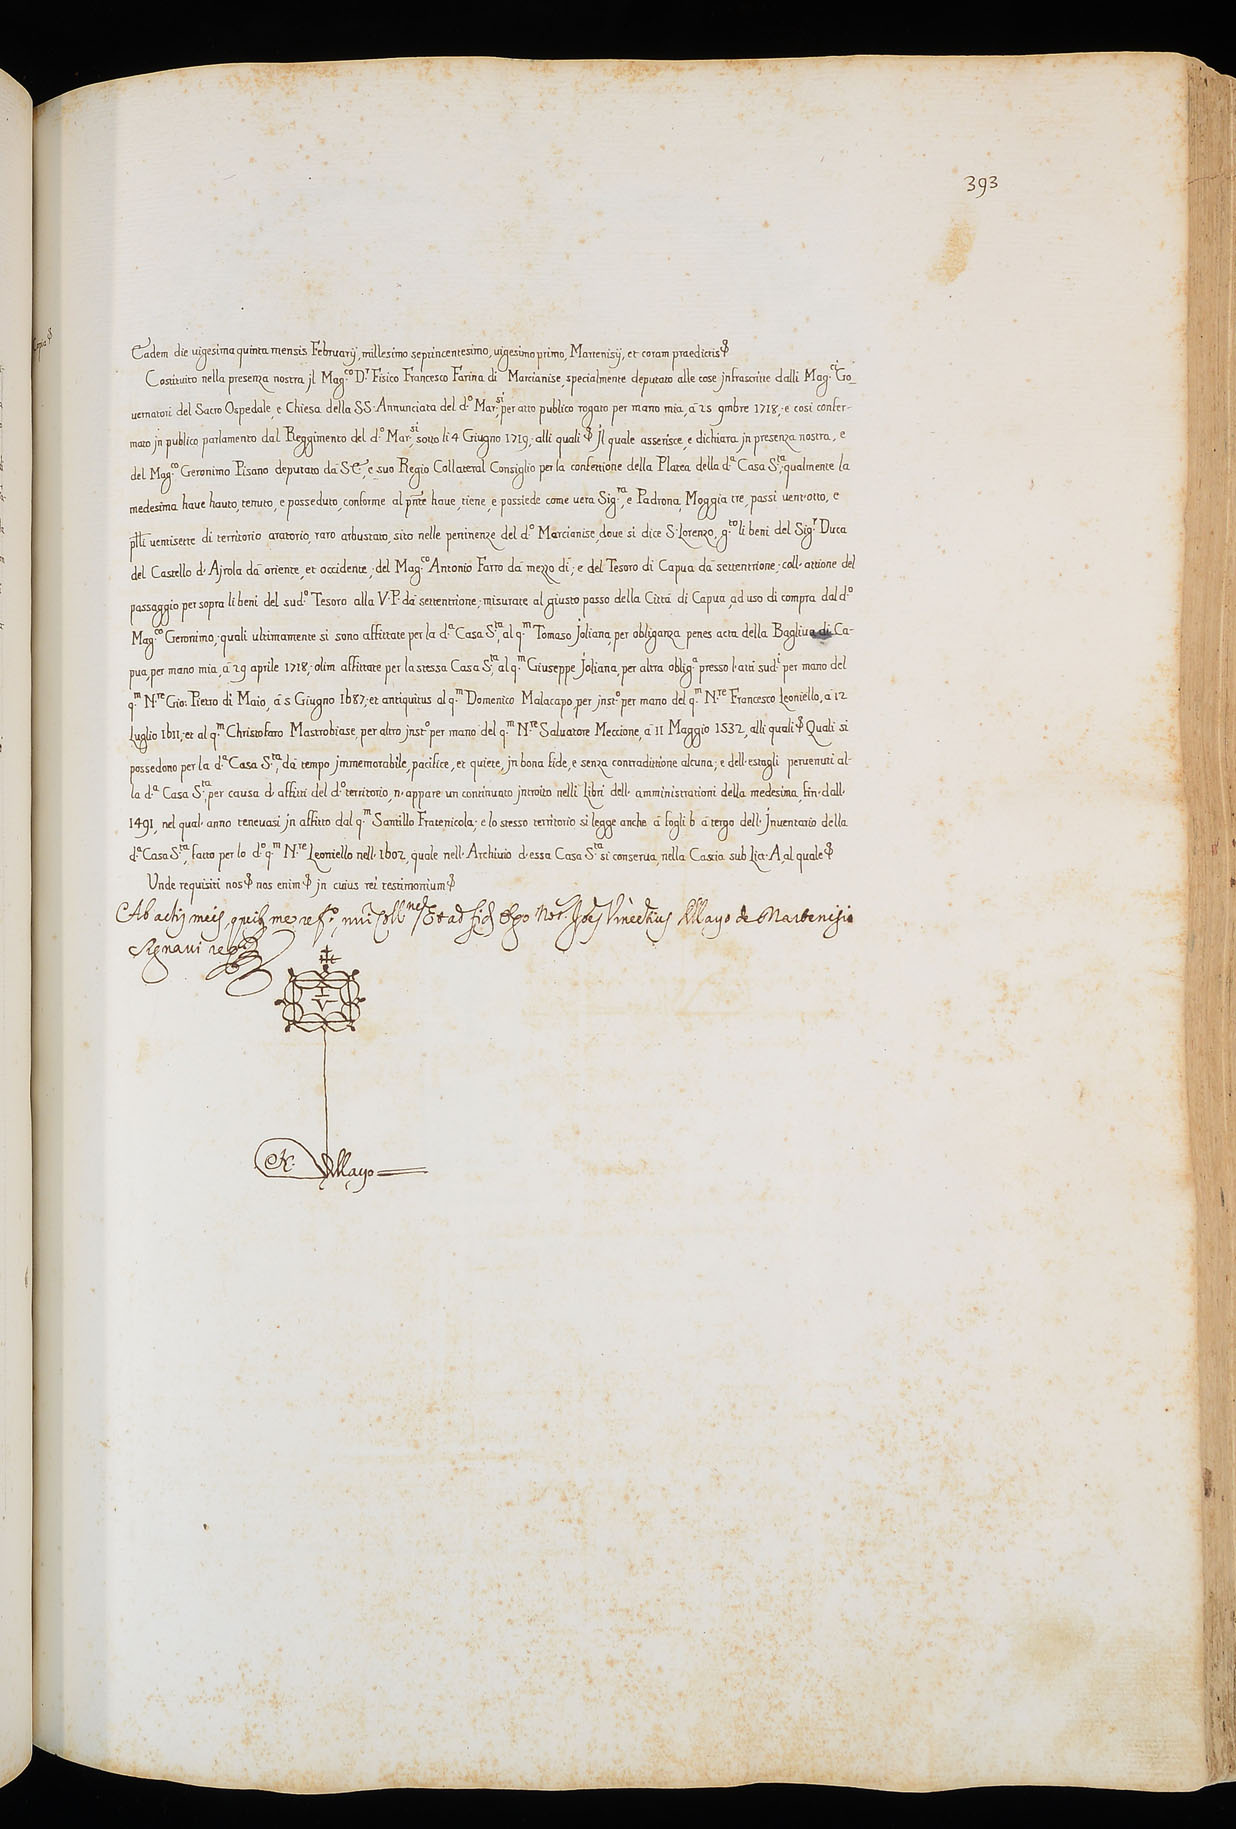 393
Eadem die uigesima quinta mensis Februarij, millesimo septincentesimo, uigesimo primo, Martenisij, et coram praedictis
Costituito nella presenza nostra jl Mag.co D.r Fisico Francesco Farina di Marcianise, specialmente deputato alle cose jnfrascritte dalli Mag.ci Go_
uernatori del Sacro Ospedale, e Chiesa della SS. Annunciata del d.o Mar.si, per atto publico rogato per mano mia, à 25 9mbre 1718, e così confer-
mato jn publico parlamento dal Reggimento del d.o Mar.si, sotto li 4 Giugno 1719, alli quali Jl quale asserisce, e dichiara jn presenza nostra, e
del Mag.co Geronimo Pisano deputato da S.E., e suo Regio Collateral Consiglio per la confettione della Platea della d.a Casa S.ta, qualmente la
medesima haue hauto, tenuto, e posseduto, conforme al pnte haue, tiene, e possiede come uera Sig.ra, e Padrona, Moggia tre, passi uent'otto, e
ptlli uentisette di territorio aratorio, raro arbustato, sito nelle pertinenze del d.o Marcianise, doue si dice S. Lorenzo, g.to li beni del Sig.r Duca
del Castello d'Ajrola dà oriente, et occidente, del Mag.co Antonio Farro dà mezzo dì; e del Tesoro di Capua dà settentrione; coll'attione del
passaggio per sopra li beni del sud.o Tesoro alla V.P. dà settentrione; misurate al giusto passo della Città di Capua, ad uso di compra dal d.o
Mag.co Geronimo; quali ultimamente si sono affittate per la d.a Casa S.ta, al q.m Tomaso Joliana, per obliganza penes acta della Bagliua di Ca-
pua, per mano mia, à 29 aprile 1718; olim affittate per la stessa Casa S.ta, al q.m Giuseppe Joliana, per altra oblig.a presso l'atti sud.i per mano del
q.m N.re Gio: Pietro di Maio, à 5 Giugno 1687; et antiquitus al q.m Domenico Malacapo, per jnst.o per mano del q.m N.re Francesco Leoniello, à 12
Luglio 1611; et al q.m Christofaro Mastrobiase, per altro jnst.o per mano del q.m N.re Saluatore Meccione, à 11 Maggio 1532, alli quali Quali si
possedono per la d.a Casa S.ta, dà tempo jmmemorabile, pacifice, et quiete, jn bona fide, e senza contradittione alcuna; e dell'estagli peruenuti al-
la d.a Casa S.ta, per causa d'affitti del d.o territorio, n'appare un continuato jntroito nelli Libri dell'amministrationi della medesima, fin dall'
1491, nel qual'anno teneuasi jn affitto dal q.m Santillo Fratenicola; e lo stesso territorio si legge anche à fogli 6 à tergo dell'Jnuentario della
d.a Casa S.ta, fatto per lo d.o q.m N.re Leoniello nell'1602, quale nell'Archiuio d'essa Casa S.ta si conserua, nella Cascia sub Litt. A, al quale
Unde requisiti nos nos enim jn cuius rei testimonium
Ab actis meis, me Et ad fid Ego Not. Vincentius Mayo de Martenisio
Signaui
I V
Mayo